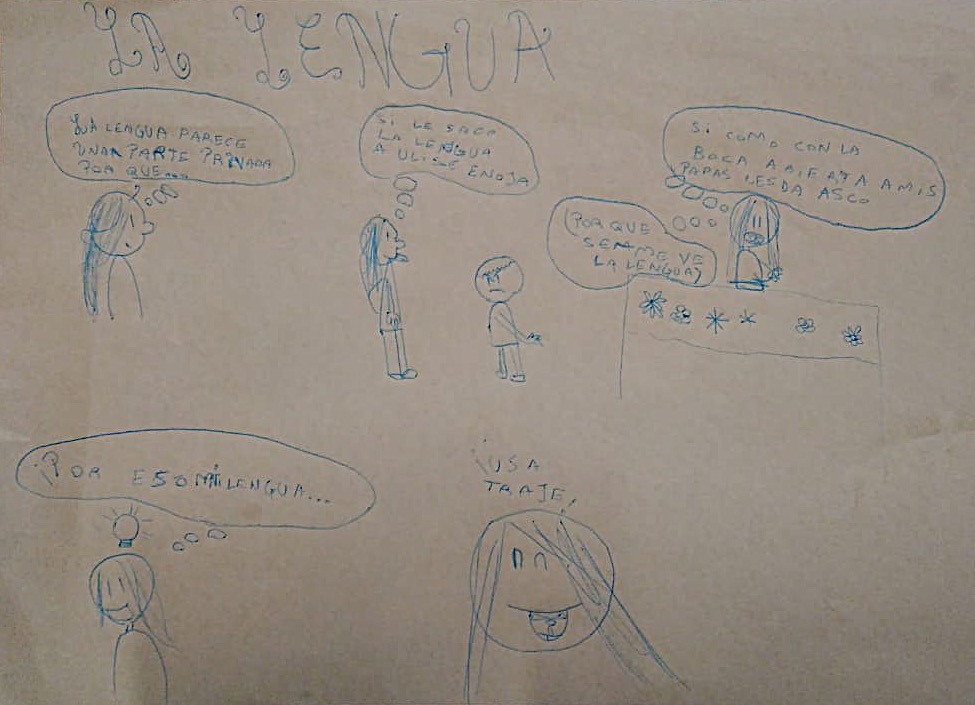 LA LENGUA
LA LENGUA PARECE
UNA PARTE PRIVADA
POR QUE...
SI LE SACO
LA LENGUA
A ULISE ENOJA
SI COMO CON LA
BOCA A MIS
PAPAS LES DA ASCO
(PORQUE
SE ME VE
LA LENGUA)
¡POR ESO MI LENGUA...
¡USA
TRAJE!